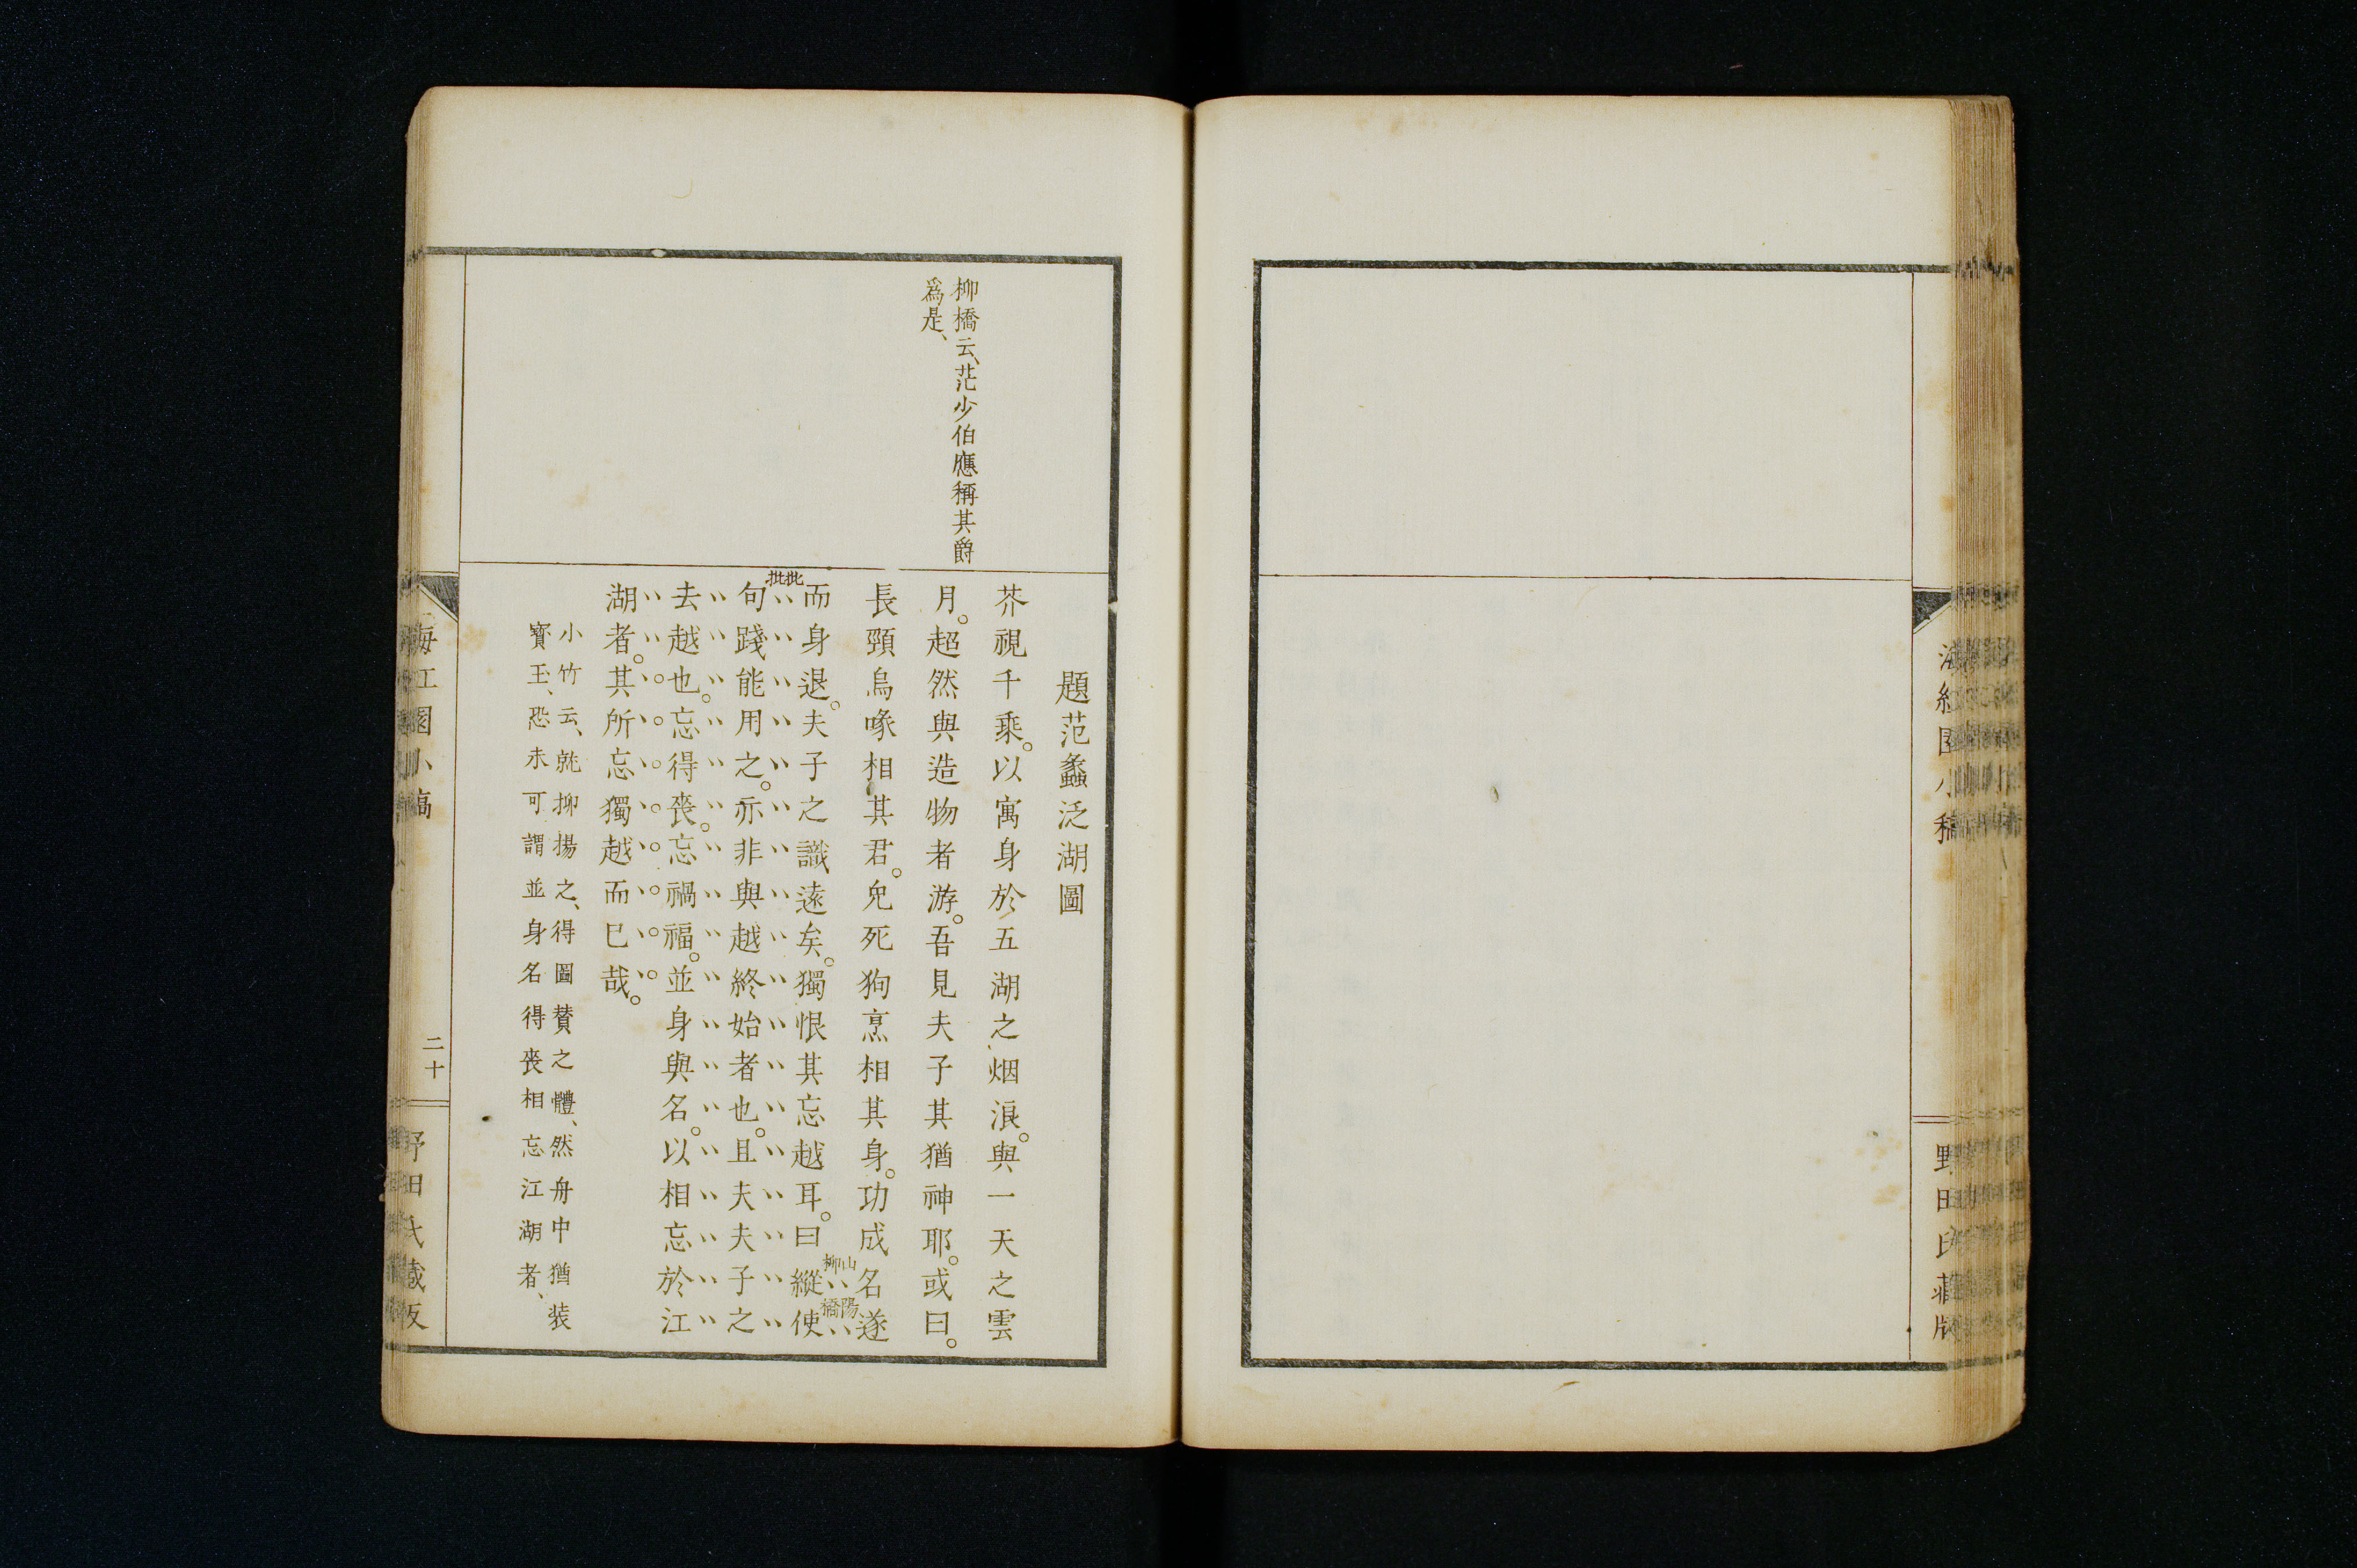 海紅園小稿
野田氏藏版
柳橋云、茫少伯應稱其爵
爲是、
題范蠡泛湖圖
芥視千乘。以寓身於五湖之烟浪。與一天之雲
月。超然與造物者游。吾見夫子其猶神耶。或曰。
長頸烏喙相其君。兔死狗烹相其身。功成名遂
而身退。夫子之識遠矣。獨恨其忘越耳。曰縱使
山陽
柳橋
批
批
句踐能用之。亦非與越終始者也。且夫夫子之
去越也。忘得喪。忘禍福。並身與名。以相忘於江
湖者。其所忘獨越而已哉。
小竹云、就抑揚之、得圖賛之體、然舟中猶装
寳玉、恐未可謂並身名得喪相忘江湖者、
海紅園小稿
二十
野田氏藏版